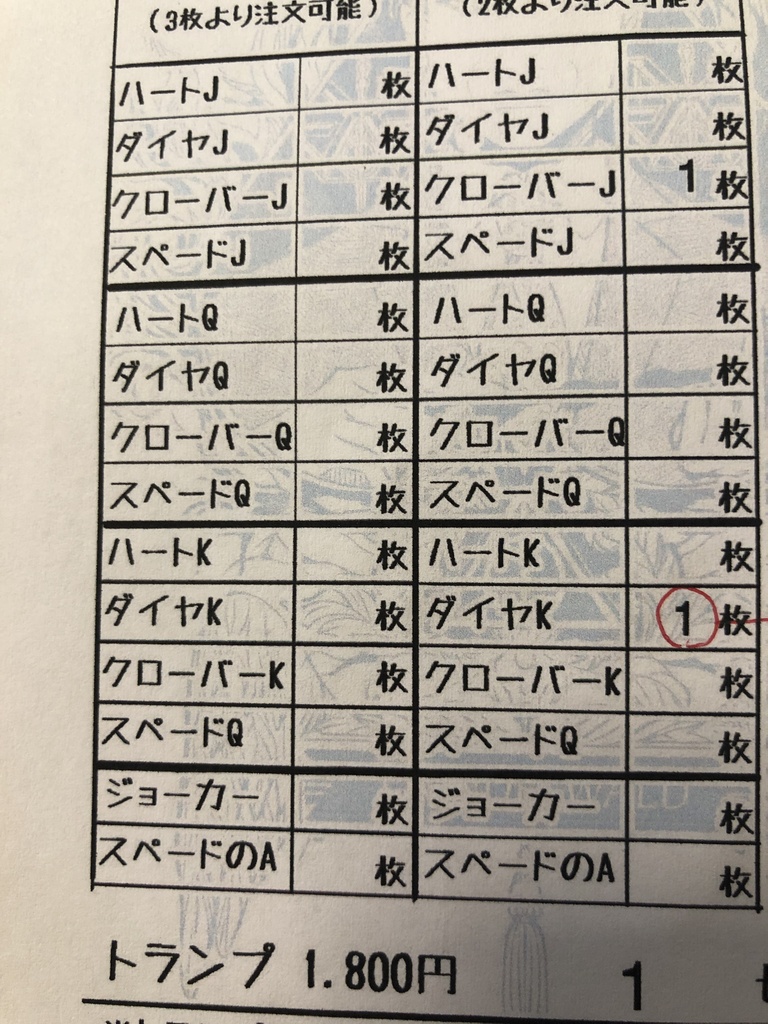 (3枚より注文可能) (2枚より注文可能)
ハートJ 枚 ハートJ 枚
ダイヤJ 枚 ダイヤJ 枚
クローバーJ 枚 クローバーJ 1枚
スペードJ 枚 スペードJ 枚
ハートQ 枚 ハートQ 枚
ダイヤQ 枚 ダイヤQ 枚
クローバーQ 枚 クローバーQ 枚
スペードQ 枚 スペードQ 枚
ハートK 枚 ハートK 枚
ダイヤK 枚 ダイヤK 1枚
クローバーK 枚 クローバーK 枚
スペードQ 枚 スペードQ 枚
ジョーカー 枚 ジョーカー 枚
スペードのA 枚 スペードのA 枚
トランプ 1.800円 1